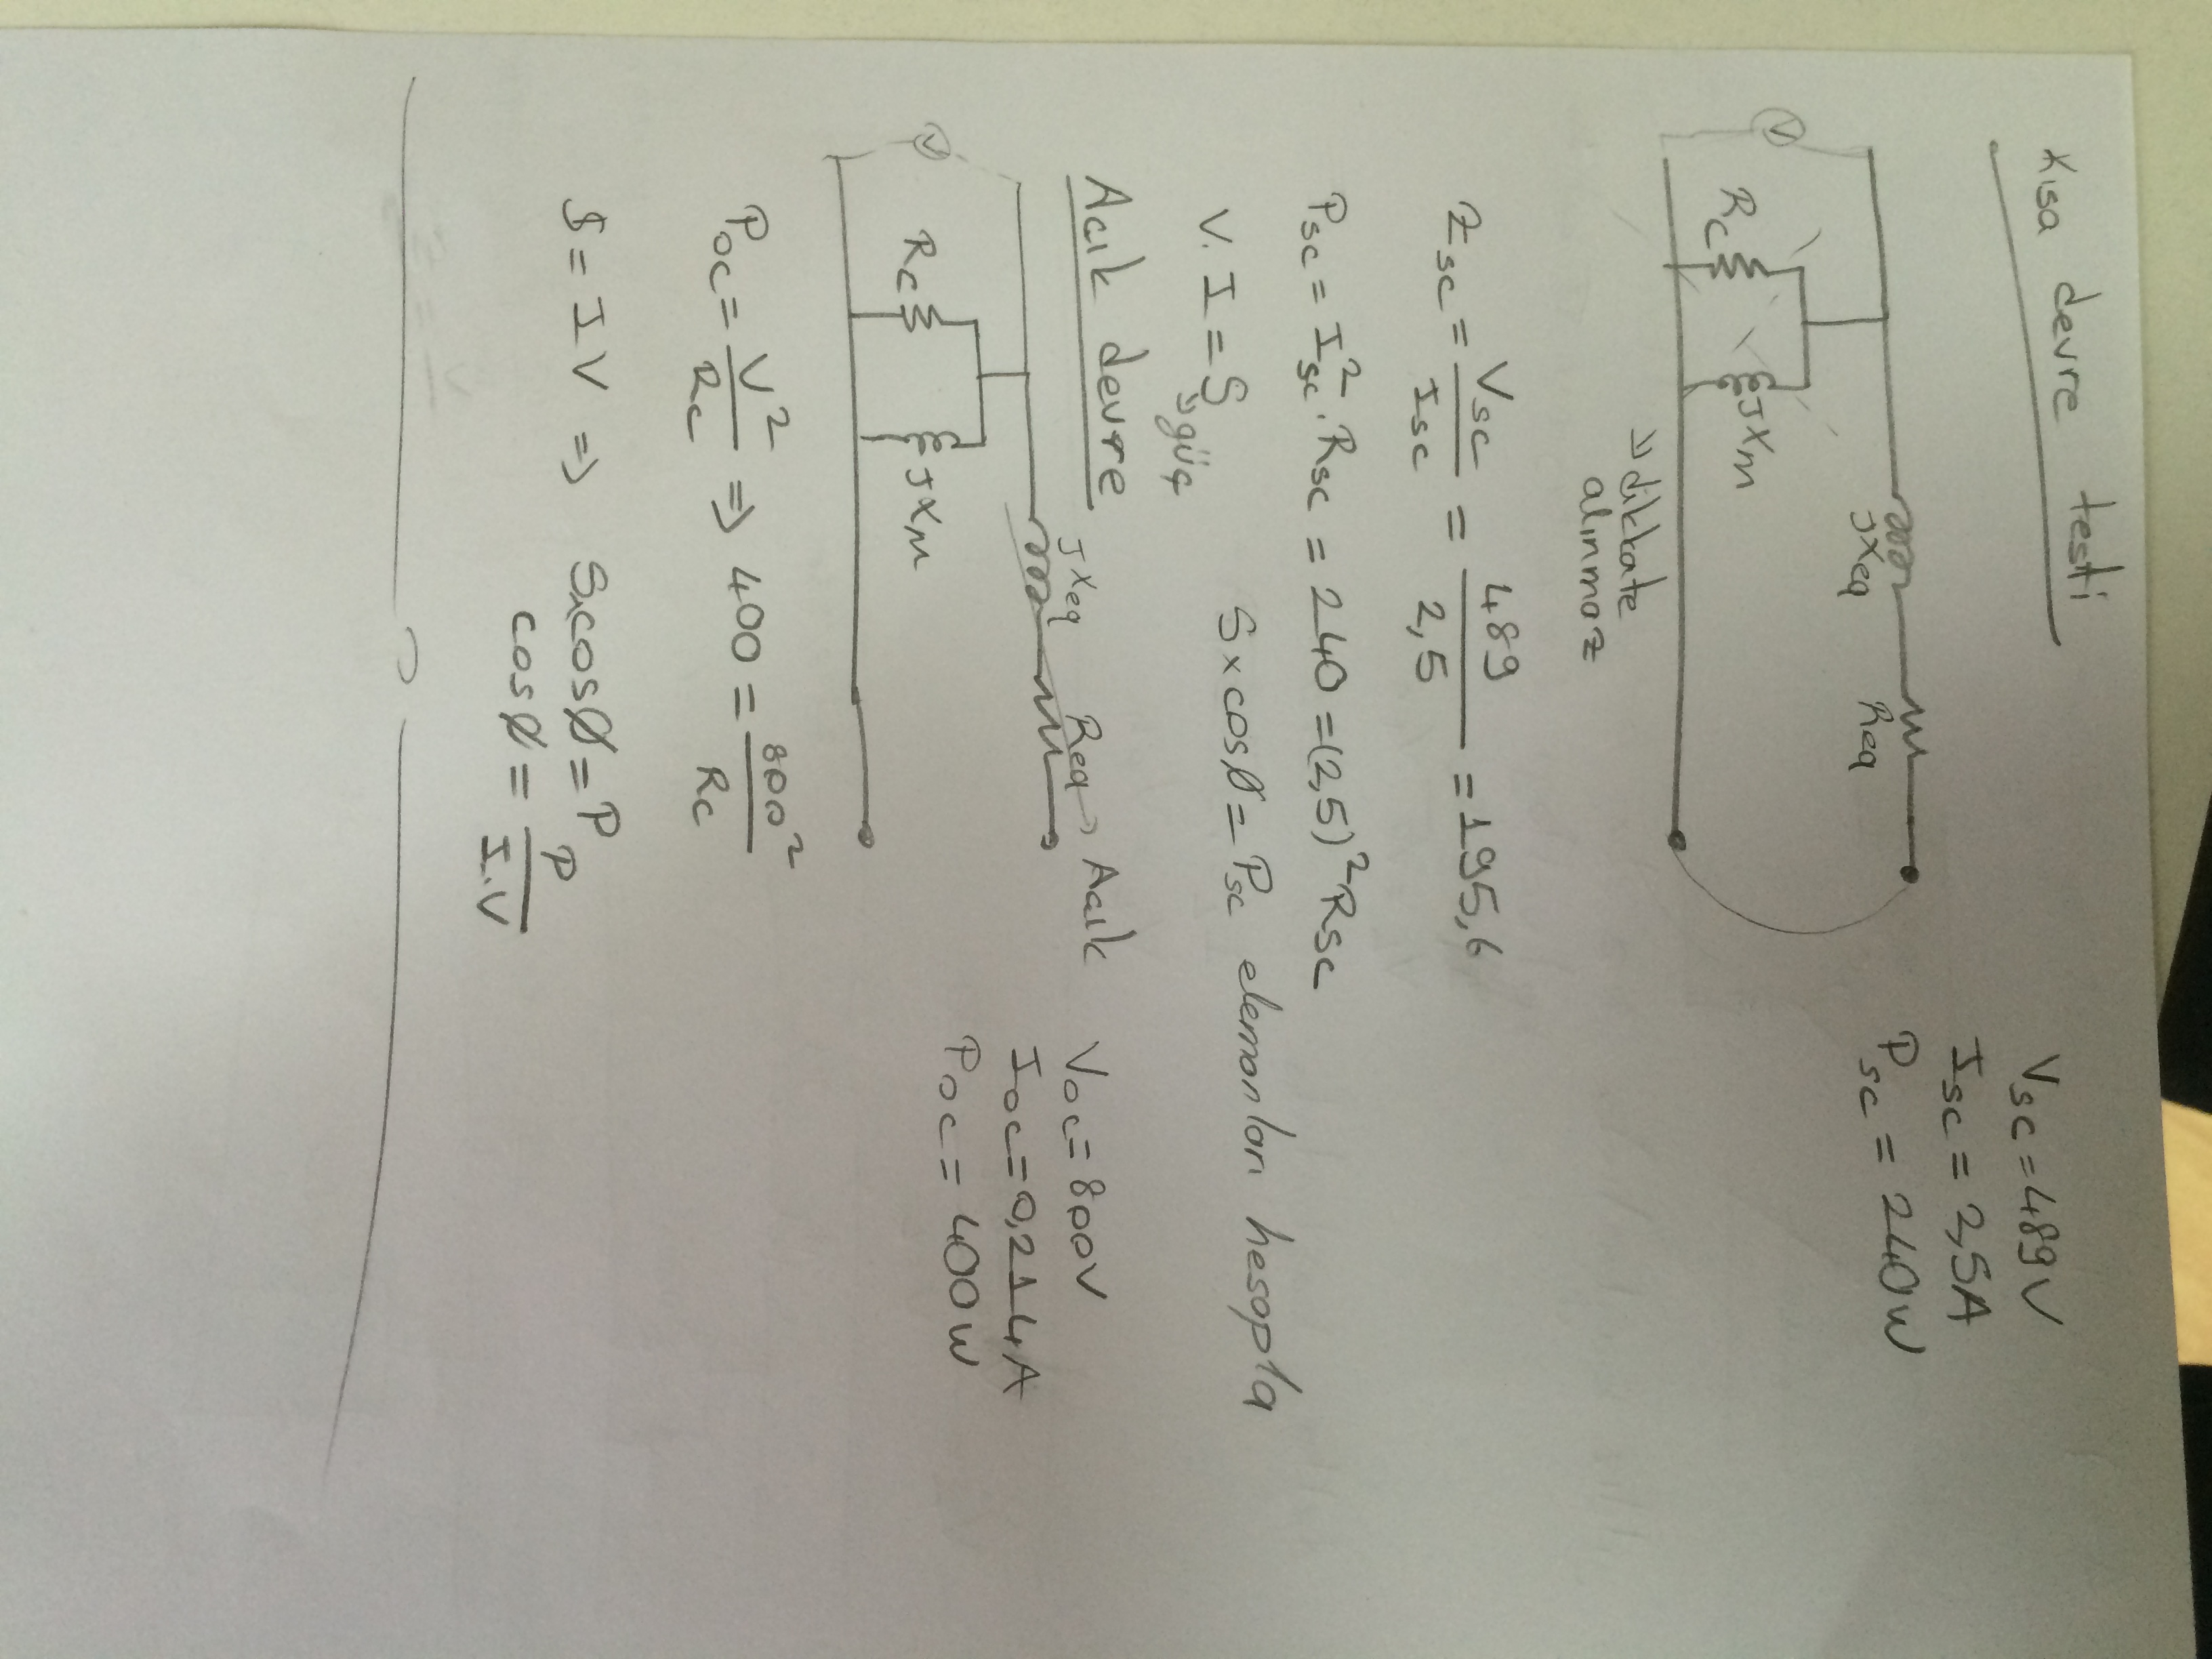 Kısa devre testi
Vsc = 489V
Isc = 2,5A
Psc = 240W
jXeq Req
V Rc jXm
→ dikkate
alınmaz
Zsc = Vsc/Isc = 489/2,5 = 195,6
Psc = I²sc.Rsc = 240 = (2,5)²Rsc
V.I = S S×cosØ = Psc elemanları hesapla
→ güç
Acık devre
jXeq Req → Acık
Voc = 800V
Ioc = 0,214A
Poc = 400W
V Rc jXm
Poc = V²/Rc ⇒ 400 = 800²/Rc
S = I V ⇒ S.cosØ = P
cosØ = P/I.V